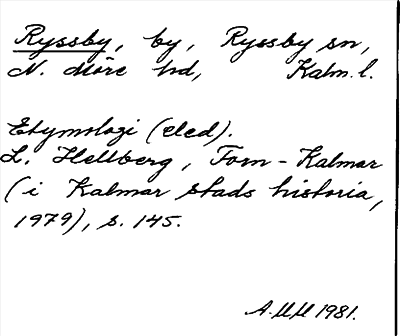 Ryssby, by, Ryssby sn,
N. Möre hd, Kalm. l.
Etymologi (eled).
L. Hellberg, Forn-Kalmar
(i Kalmar stads historia,
1979), s. 145.
A.MM 1981.